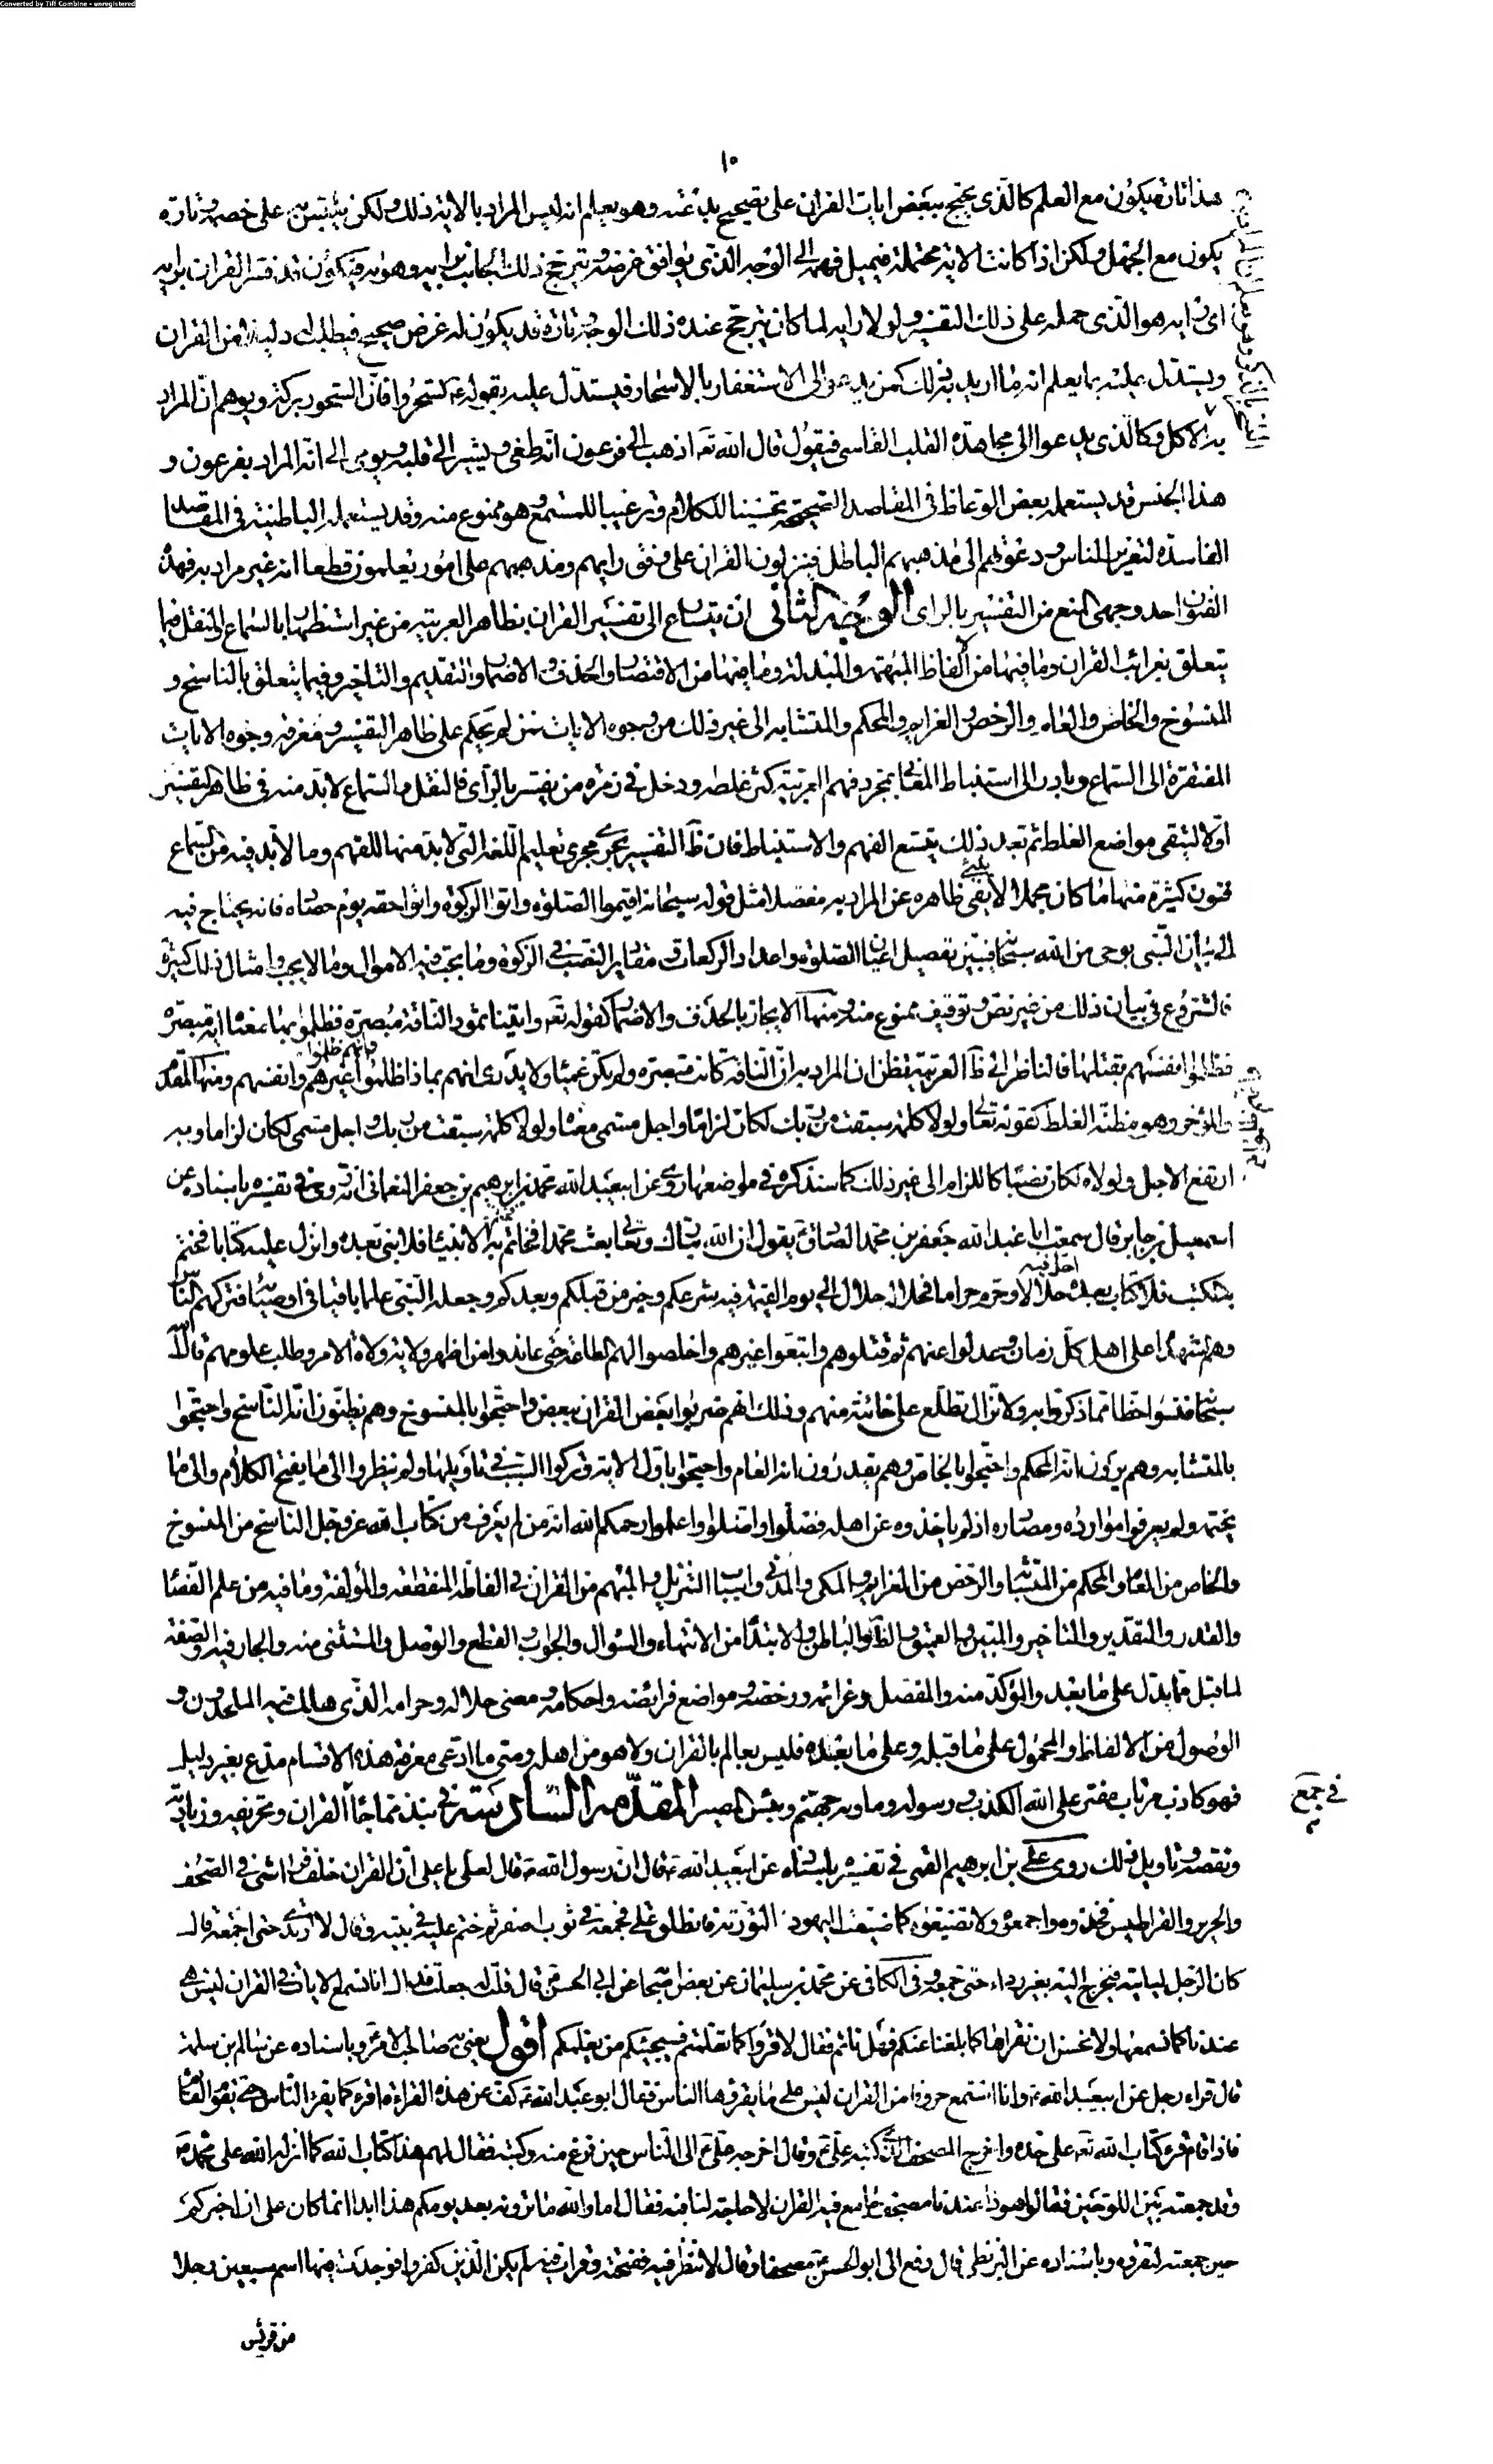 Converted by Tiff Combine - unregistered
١٠
هذا تارة يكون مع العلم كالذي يحتج ببعض ايات القران على تصحيح بدعته وهو يعلم انه ليس المراد بالاية ذلك ولكن يلبس به على خصمه وتارة
يكون مع الجهل ولكن اذا كانت الاية محتملة فيميل فهمه الى الوجه الذي يوافق غرضه ويترجح ذلك الجانب برايه وهواه فيكون قد فسر القران برايه
اي رايه هو الذي حمله على ذلك التفسير ولولا رايه لما كان يترجح عنده ذلك الوجه وتارة قد يكون له غرض صحيح فيطلب له دليلا من القران
ويستدل عليه بما يعلم انه ما اريد به ذلك كمن يدعو الى الاستغفار بالاسحار فيستدل عليه بقوله ع تسحروا فان السحور بركة ويوهم ان المراد
به الاكل وكالذي يدعوا الى مجاهدة القلب القاسي فيقول قال الله تعا اذهب الى فرعون انه طغى ويشير الى قلبه ويومي الى انه المراد بفرعون و
هذا الجنس قد يستعمله بعض الوعاظ في المقاصد الصحيحة تحسينا للكلام وترغيبا للمستمع وهو ممنوع منه وقد يستعمله الباطنية في المقاصد
الفاسدة لتغرير الناس ودعوتهم الى مذهبهم الباطل فينزلون القران على وفق رايهم ومذهبهم على امور يعلمون قطعا انه غير مراد به فهذه
الفنون احد وجهي المنع من التفسير بالراي الوجه الثاني ان يتسارع الى تفسير القران بظاهر العربية من غير استظهار بالسماع والنقل فيما
يتعلق بغرائب القران وما فيها من الالفاظ المبهمة والمبدلة وما فيها من الاقتصار والحذف والاضمار والتقديم والتاخير وفيما يتعلق بالناسخ و
المنسوخ والخاص والعام والرخص والعزايم والمحكم والمتشابه الى غير ذلك من وجوه الايات فمن لم يحكم على ظاهر التفسير ومعرفة وجوه الايات
المفتقرة الى السماع وبادر الى استنباط المعاني بمجرد فهم العربية كثر غلطه ودخل في زمرة من يفسر بالراي فالنقل والسماع لابد منه في ظاهر التفسير
اولا ليتقى مواضع الغلط ثم بعد ذلك يتسع الفهم والاستنباط فان ظا التفسير يجري مجرى تعليم اللغة التي لابد منها للفهم وما لا بد فيه من السماع
فنون كثيرة منها ما كان مجملا لا ينبئ ظاهره عن المراد به مفصلا مثل قوله سبحانه اقيموا الصلوة واتوا الزكوة واتوا حقه يوم حصاده فانه يحتاج فيه
الى بيان النبي بوحي من الله سبحانه فيبين تفصيل اعيان الصلوة واعداد الركعات ومقادير النصب في الزكوة وما يجب فيه من الاموال وما لا يجب وامثال ذلك كثيرة
فالشروع في بيان ذلك من غير نص وتوقيف ممنوع منه ومنها الايجاز بالحذف والاضمار كقوله تعا واتينا ثمود الناقة مبصرة فظلموا بها معناه اية مبصرة
فظلموا انفسهم بقتلها فالناظر الى ظا العربية يظن ان المراد به ان الناقة كانت مبصرة ولم تكن عمياء ولا يدري انهم بماذا ظلموا وانهم ظلموا غيرهم وانفسهم ومنها المقدم
والمؤخر وهو مظنة الغلط كقوله تعالى ولولا كلمة سبقت من ربك لكان لزاما واجل مسمى معناه ولولا كلمة سبقت من ربك واجل مسمى لكان لزاما وبه
ارتفع الاجل ولولاه لكان نصبا كاللزام الى غير ذلك كما سنذكره في مواضعها روي عن ابيعبد الله محمد بن ابرهيم بن جعفر النعماني انه روى في تفسيره باسناده عن
اسمعيل بن جابر قال سمعت ابا عبد الله جعفر بن محمد الصادق ع يقول ان الله تبارك وتعالى بعث محمدا فختم به الانبياء فلا نبي بعده وانزل عليه كتابا فختم
به الكتب فلا كتاب بعده احل فيه حلالا وحرم حراما فحلاله حلال الى يوم القيمة فيه شرعكم وخبر من قبلكم وبعدكم وجعله النبي علما باقيا في اوصيائه فتركهم الناس
وهم الشهداء على اهل كل زمان وعدلوا عنهم ثم قتلوهم واتبعوا غيرهم واخلصوا لهم الطاعة حتى عاندوا من اظهر ولاية ولاة الامر وطلب علومهم قال الله
سبحانه فنسوا حظا مما ذكروا به ولا تزال تطلع على خائنة منهم وذلك انهم ضربوا بعض القران ببعض واحتجوا بالمنسوخ وهم يظنون انه الناسخ واحتجوا
بالمتشابه وهم يرون انه المحكم واحتجوا بالخاص وهم يقدرون انه العام واحتجوا باول الاية وتركوا السبب في تاويلها ولم ينظروا الى ما يفتح الكلام والى ما
يختمه ولم يعرفوا موارده ومصادره اذ لم ياخذوه عن اهله فضلوا واضلوا واعلموا رحمكم الله انه من لم يعرف من كتاب الله عز وجل الناسخ من المنسوخ
والخاص من العام والمحكم من المتشابه والرخص من العزايم والمكي والمدني واسباب التنزيل والمبهم من القران في الفاظه المنقطعة والمؤلفة وما فيه من علم القضاء
والقدر والتقديم والتاخير والمبين والعميق والظاهر والباطن والابتداء من الانتهاء والسؤال والجواب والقطع والوصل والمستثنى منه والجار فيه والصفة
لما قبل مما يدل على ما بعد والمؤكد منه والمفصل وعزائمه ورخصه ومواضع فرايضه واحكامه ومعنى حلاله وحرامه الذي هلك فيه الملحدون و
الوصول من الالفاظ والمحمول على ما قبله وعلى ما بعده فليس بعالم بالقران ولا هو من اهله ومتى ما ادعى معرفة هذه الاقسام مدع بغير دليل
فهو كاذب مرتاب مفتر على الله الكذب ورسوله وماويه جهنم وبئس المصير المقدمة السادسة في نبذ مما جاء في جمع القران وتحريفه وزيادته
ونقصه وتاويل ذلك روى علي بن ابرهيم القمي في تفسيره باسناده عن ابيعبد الله ع قال ان رسول الله ص قال لعلي يا علي ان القران خلف فراشي في الصحف
والحرير والقراطيس فخذوه واجمعوه ولا تضيعوه كما ضيعت اليهود التورية فانطلق علي فجمعه في ثوب اصفر ثم ختم عليه في بيته وقال لا ارتدي حتى اجمعه قال
كان الرجل لياتيه فيخرج اليه بغير رداء حتى جمعه وفي الكافي عن محمد بن سليمان عن بعض اصحابه عن ابي الحسن ع قال قلت له جعلت فداك انا نسمع الايات في القران ليس هي
عندنا كما نسمعها ولا نحسن ان نقراها كما بلغنا عنكم فهل ناثم فقال لا اقرؤا كما تعلمتم فسيجيئكم من يعلمكم اقول يعني به صاحب الامر ع وباسناده عن سالم بن سلمة
قال قراء رجل عن ابيعبد الله ع وانا استمع حروفا من القران ليس على ما يقرؤها الناس فقال ابو عبد الله ع كف عن هذه القراءة اقرء كما يقرء الناس حتى يقوم القائم
فاذا قام قرء كتاب الله تعا على حده واخرج المصحف الذي كتبه علي ع وقال اخرجه علي ع الى الناس حين فرغ منه وكتبه فقال لهم هذا كتاب الله كما انزله الله على محمد ص
وقد جمعته بين اللوحين فقالوا هوذا عندنا مصحف جامع فيه القران لا حاجة لنا فيه فقال اما والله ما ترونه بعد يومكم هذا ابدا انما كان علي ان اخبركم
حين جمعته لتقرؤه وباسناده عن البزنطي قال دفع الى ابو الحسن ع مصحفا وقال لا تنظر فيه ففتحته وقرات فيه لم يكن الذين كفروا فوجدت فيها اسم سبعين رجلا
من قريش